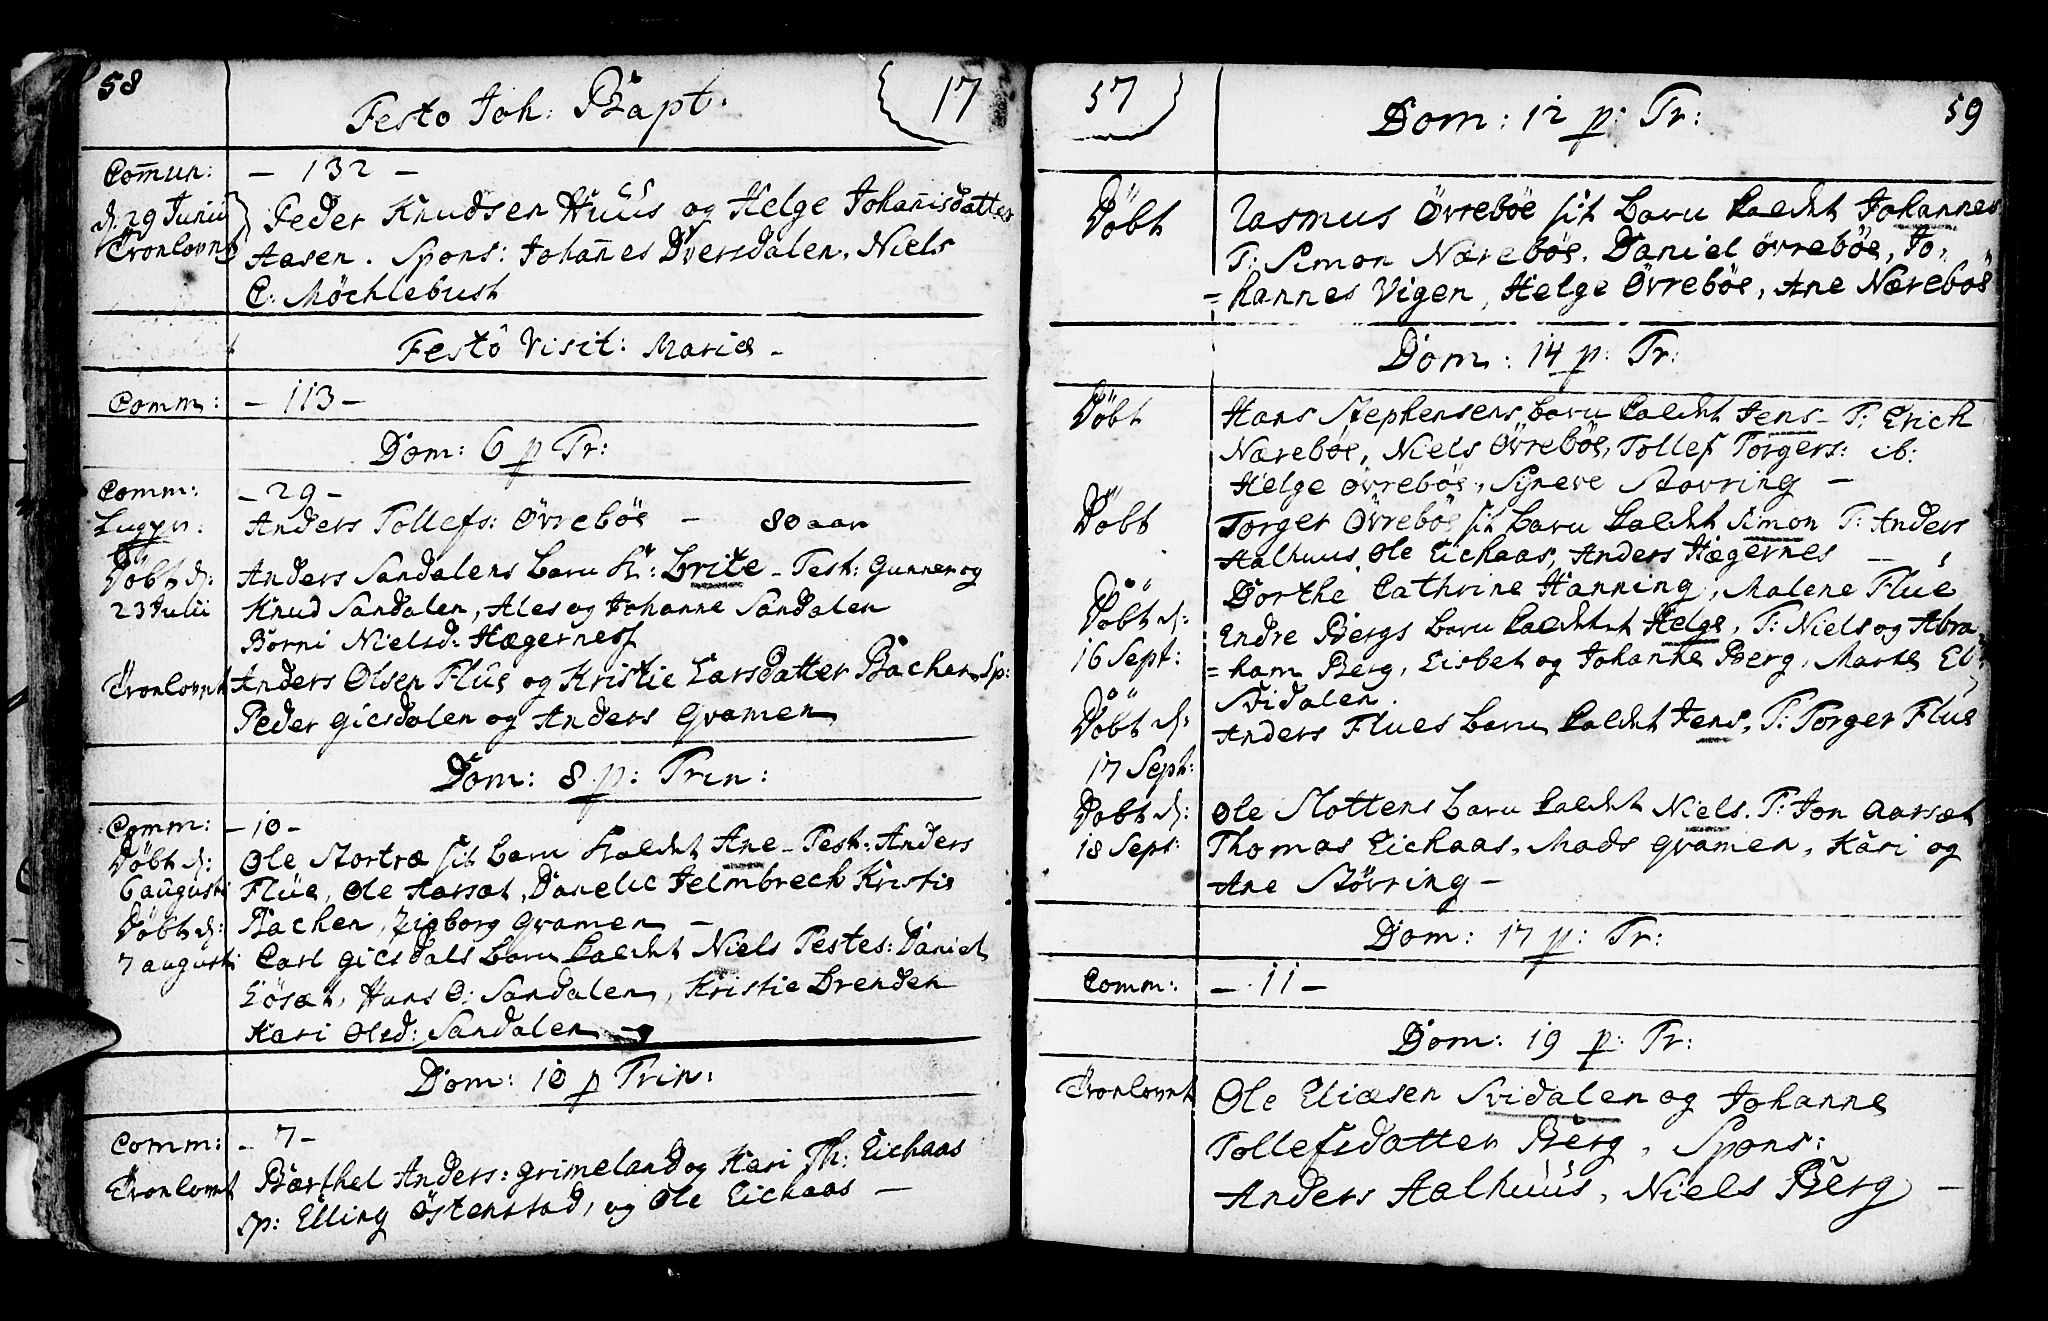 58
Festo Joh: Bapt.
17
Com̄un: — 132 —
d. 29 Junii Peder Knudsen Huus og Helge Johan̄isdatter
Tronlovn: Aasen. Spons: Johan̄es Dversdalen, Niels
C: Möchlebust
Festo Visit: Mariæ -
Comm: - 113 -
Dom: 6 p Tr:
Comm: - 29 -
Anders Tollefs: Övrebôe — 80 aar
Döbt d: Anders Sandalens barn K: Brite - Test: Gunner og
23 Julii Knud Sandalen, Ales og Johanne Sandalen
Börni Nielsd: Hægernes
Tronlovnt Anders Olsen Flúe og Kristie Larsdatter Bachen, Sp:
Peder Giesdalen og Anders Gvamen
Dom: 8 p: Trin:
Comm: - 10 -
Döbt d: Ole Stortræ sit barn kaldet Ane - Test: Anders
6 augusti Flúe, Ole Aarsæt, Danelie Jelmbrech Kristie
Döbt d: Bachen, Zigborg Gvamen —
7 augusti Carl Giesdals barn kaldet Niels Testes: Daniel
Lösæt, Hans O: Sandalen, Kristie Brenden
Kari Olsd: Sandalen —
Dom: 10 p Trin:
Comm: - 7 -
Tronlovnt Barthel Anders: Grimeland og Kari Th: Eichaas
Sp: Elling Östenstad, og Ole Eichaas —
57
Dom: 12 p: Tr:
59
Döbt Rasmus Övreböe sit barn kaldet Johannes
T: Simon Næreböe, Daniel övreböe, Jo-
=hannes Vigen, Helge Övreböe, Ane Næreböe
Dom: 14 p: Tr:
Döbt Hans Stephensens barn kaldet Jens - T: Erich
Næreböe, Niels Övreböe, Tollef Torgers: ib:
Helge Övreböe, Syneve Stovring —
Döbt Torger Övreböe sit barn kaldet Simon T: Anders
Aalhuus, Ole Eichaas, Anders Hægernes —
Dorthe Cathrine Hanning, Malene Flúe
Döbt d: Endre Bergs barn kaldet Helge, T: Niels og Abra-
16 Sept: =ham Berg, Lisbet og Johanne Berg, Marte El:
Svidalen.
Döbt d: Anders Flues barn kaldet Jens, T: Torger Flúe
17 Sept:
Döbt d: Ole Slottens barn kaldet Niels. T: Jon Aarsæt
18 Sept: Thomas Eichaas, Mads Gvamen, Kari og
Ane Stövring -
Dom: 17 p: Tr:
Comm: - 11 -
Dom: 19 p: Tr:
Tronlovnt Ole Eliæsen Svidalen og Johanne
Tollefsdatter Berg, Spons:
Anders Aalhuus, Niels Berg —